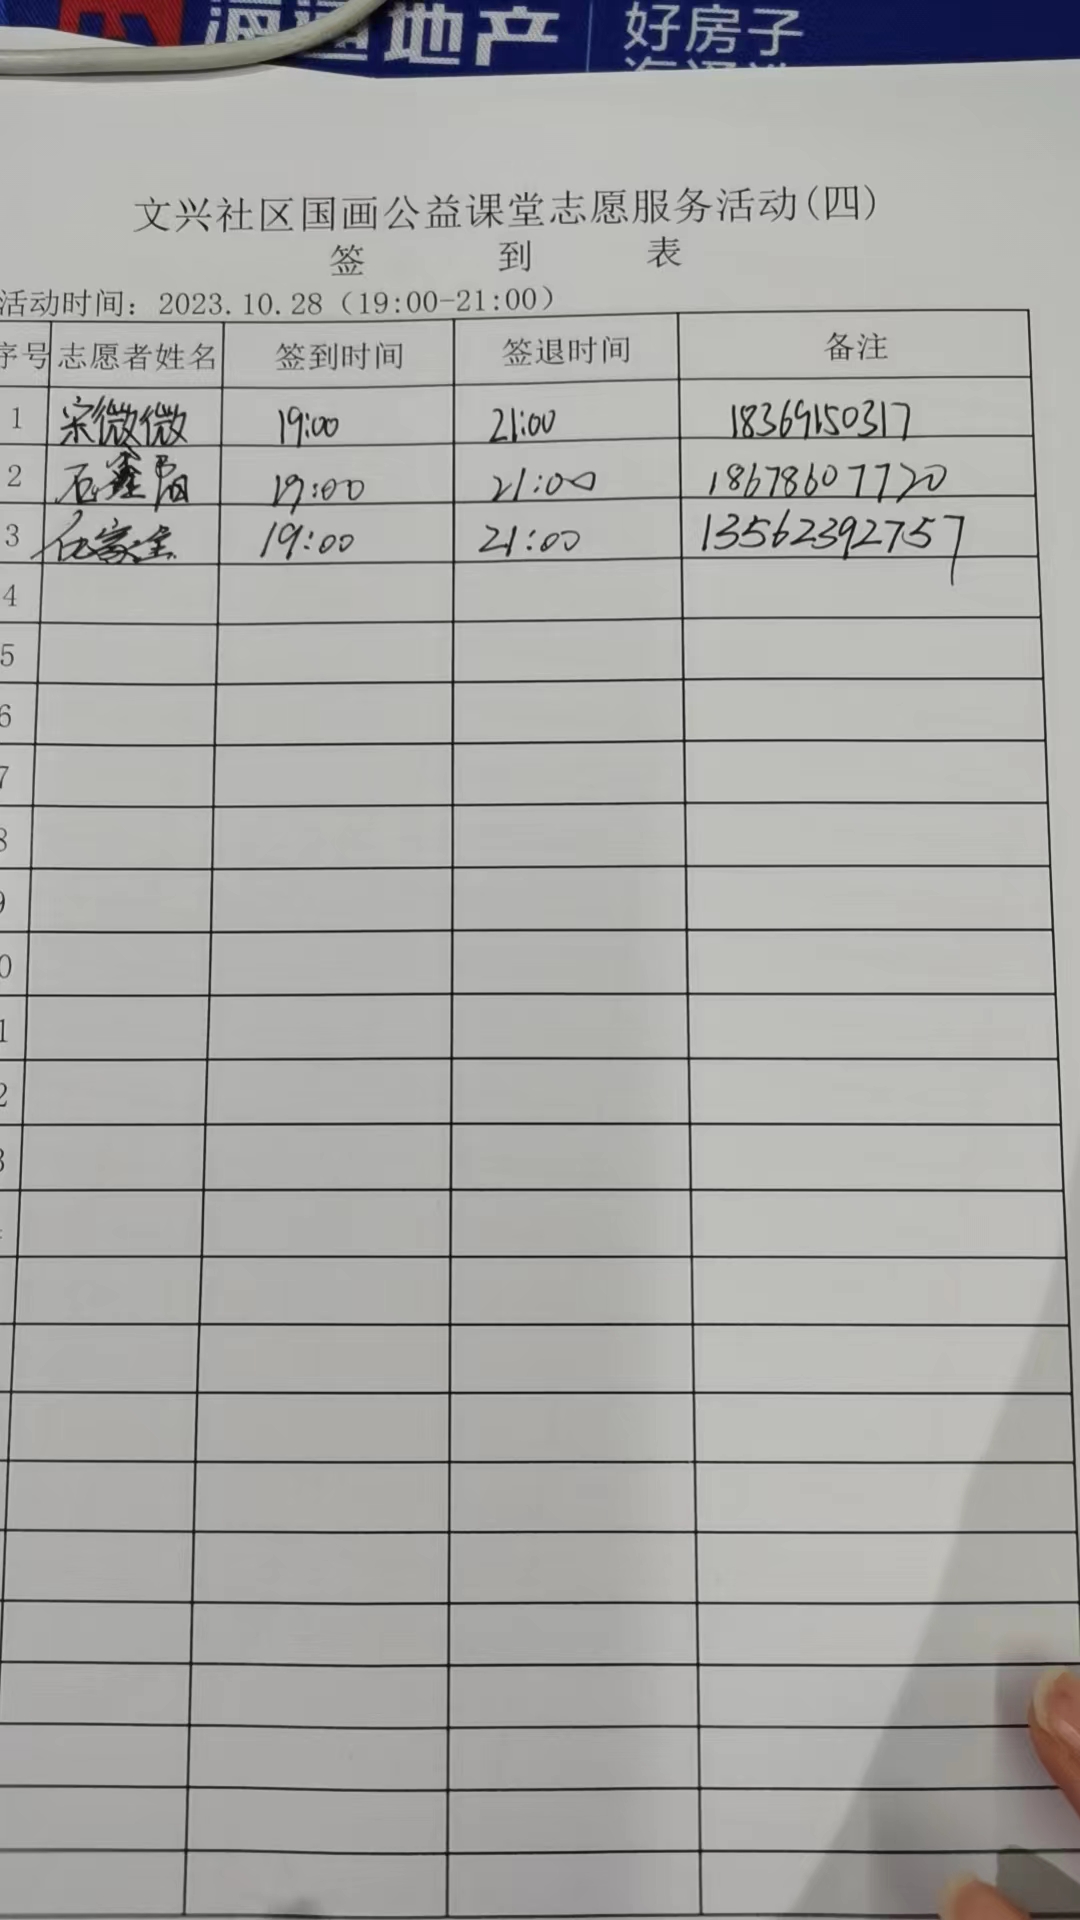 海通地产 好房子
文兴社区国画公益课堂志愿服务活动(四)
签 到 表
活动时间：2023.10.28（19:00-21:00）
序号 志愿者姓名 签到时间 签退时间 备注
1 宋微微 19:00 21:00 18369150317
2 石鑫阳 19:00 21:00 18678607720
3 19:00 21:00 13562392757
4
5
6
7
8
9
0
1
2
3